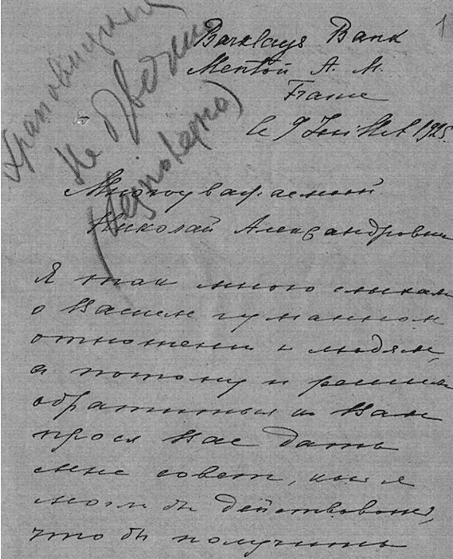 1
Barklays Bank
Menton A. M.
France
le 9 Juillet 1925.
Не
Многоуважаемый
Николай Александрович
Я так много слыхал
о Вашем гуманном
отношении к людям,
а потому и решил
обратиться к Вам
прося Вас дать
мне совет, как я
мог бы действовать,
что бы получить